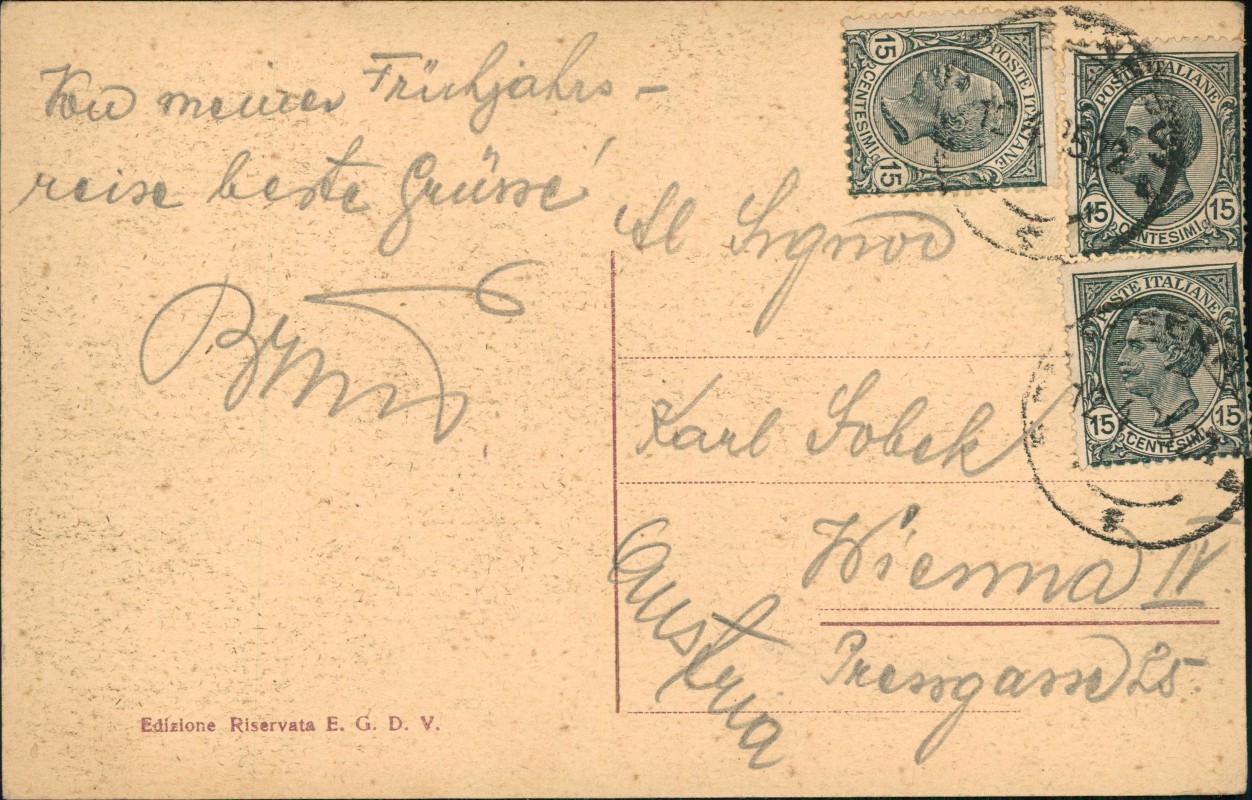 Von meiner Frühjahrs-
reise beste Grüsse!
Al Signor
Karl Sobek
Wienna IV
Pressgasse 25.
Austria
Edizione Riservata E. G. D. V.
POSTE ITALIANE
15 CENTESIMI 15
POSTE ITALIANE
15 CENTESIMI 15
POSTE ITALIANE
15 CENTESIMI 15